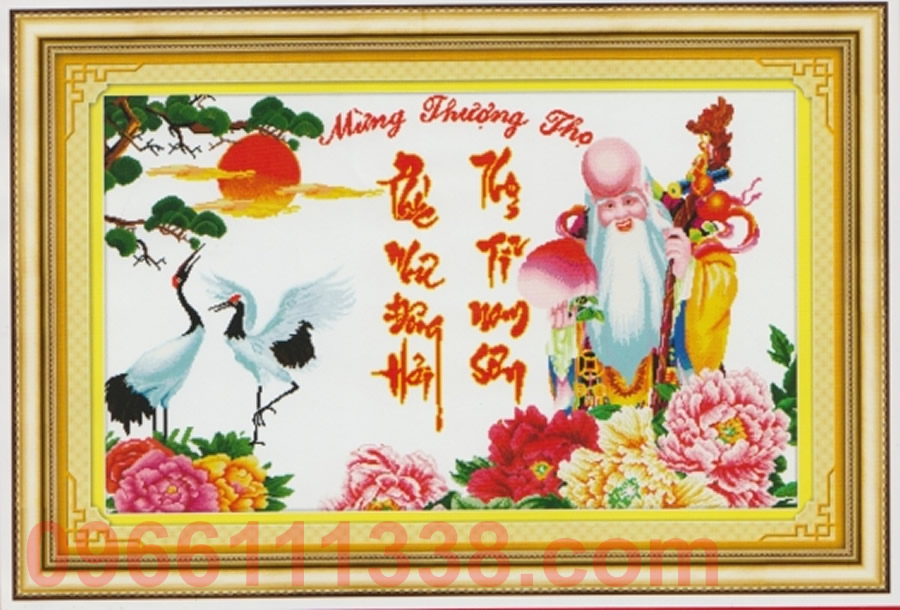 Mừng Thượng Thọ
Phúc Như Đông Hải
Thọ Tỉ Nam Sơn
0966111338.com